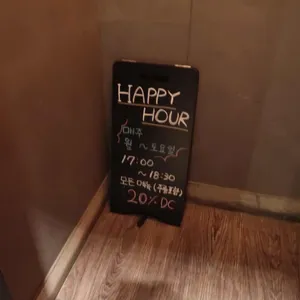 HAPPY
HOUR
매주
월 ~ 토요일
17:00
~ 18:30
모든 (주류포함)
20% DC